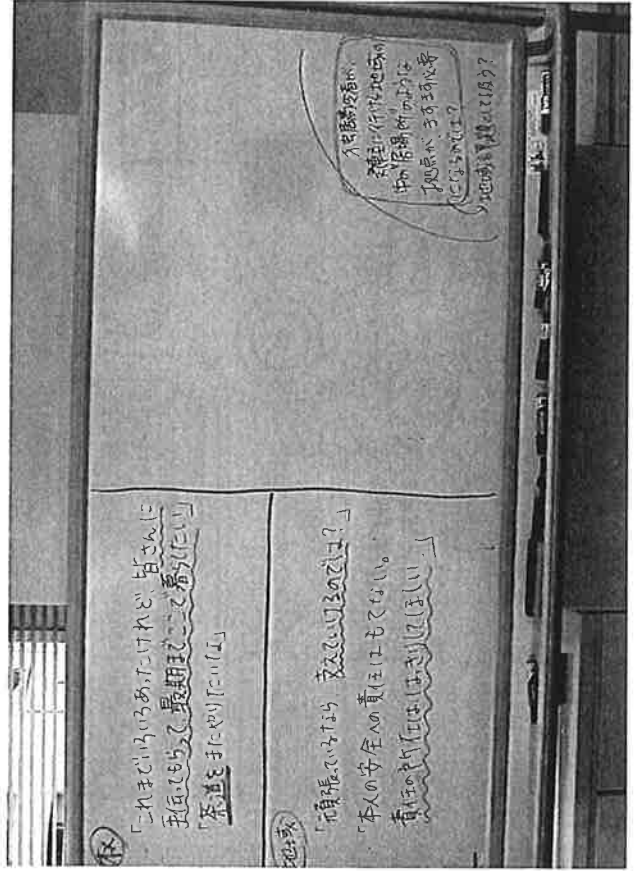 「これまでいろいろあったけれど、皆さんに
手伝ってもらって、最期までここで暮らしたい」
「茶道をまたやりたいな」
地域
「頑張っているなら 支えていけるのでは?」
「本人の安全への責任はもてない。
責任の所在ははっきりしてほしい…」
気軽に行ける地域の
中の"居場所"のような
拠点が、ますます必要
になるのでは?